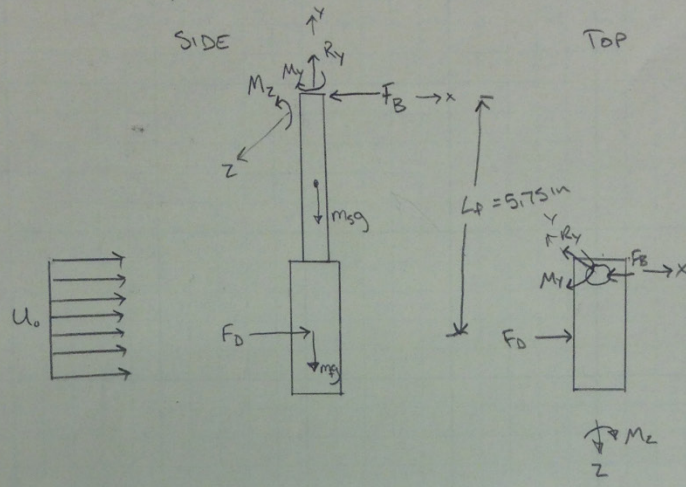 SIDE
TOP
Y
Ry
My
Mz
FB
x
Z
msg
Lf = 5.75in
Uo
FD
mfg
Y
Ry
FB
X
My
FD
Mz
Z